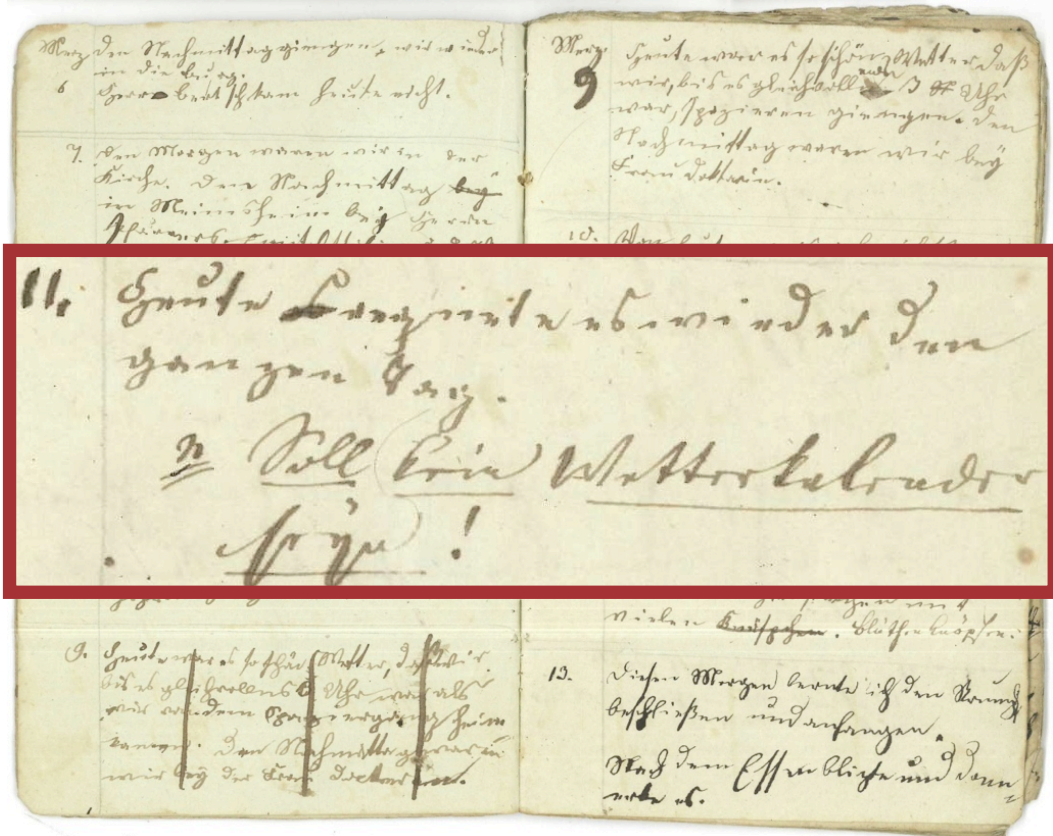 Merz den Nachmittag giengen, wir wieder
in die Burg.
6 Herr beat Ith kam heute nicht.
7. Den Morgen waren wir in der
Kirche. Den Nachmittag bey
in Meimsheim bey Herrn
Pfarrers.
Merz Heute war es so schön Wetter daß
9 wir, bis es gleich voll ends 3 Uhr
war, spazieren giengen. Den
Nachmittag waren wir bey
Frau Doktorin.
10. Von heute
11. Heute regnete es wieder den
ganzen Tag.
Soll kein Wetterkalender
seyn!
9. Heute war es so schön Wetter, daß wir
bis es gleich vollends Uhr war als
wir von dem Spaziergang heim
kamen. Den Nachmittag waren
wir bey der Frau Doctorin.
vielen Knöspchen. Blüthenknöpfen.
13. Diesen Morgen lernte ich den Strumpf
beschließen und anfangen.
Nach dem Essen blizte und donn=
erte es.